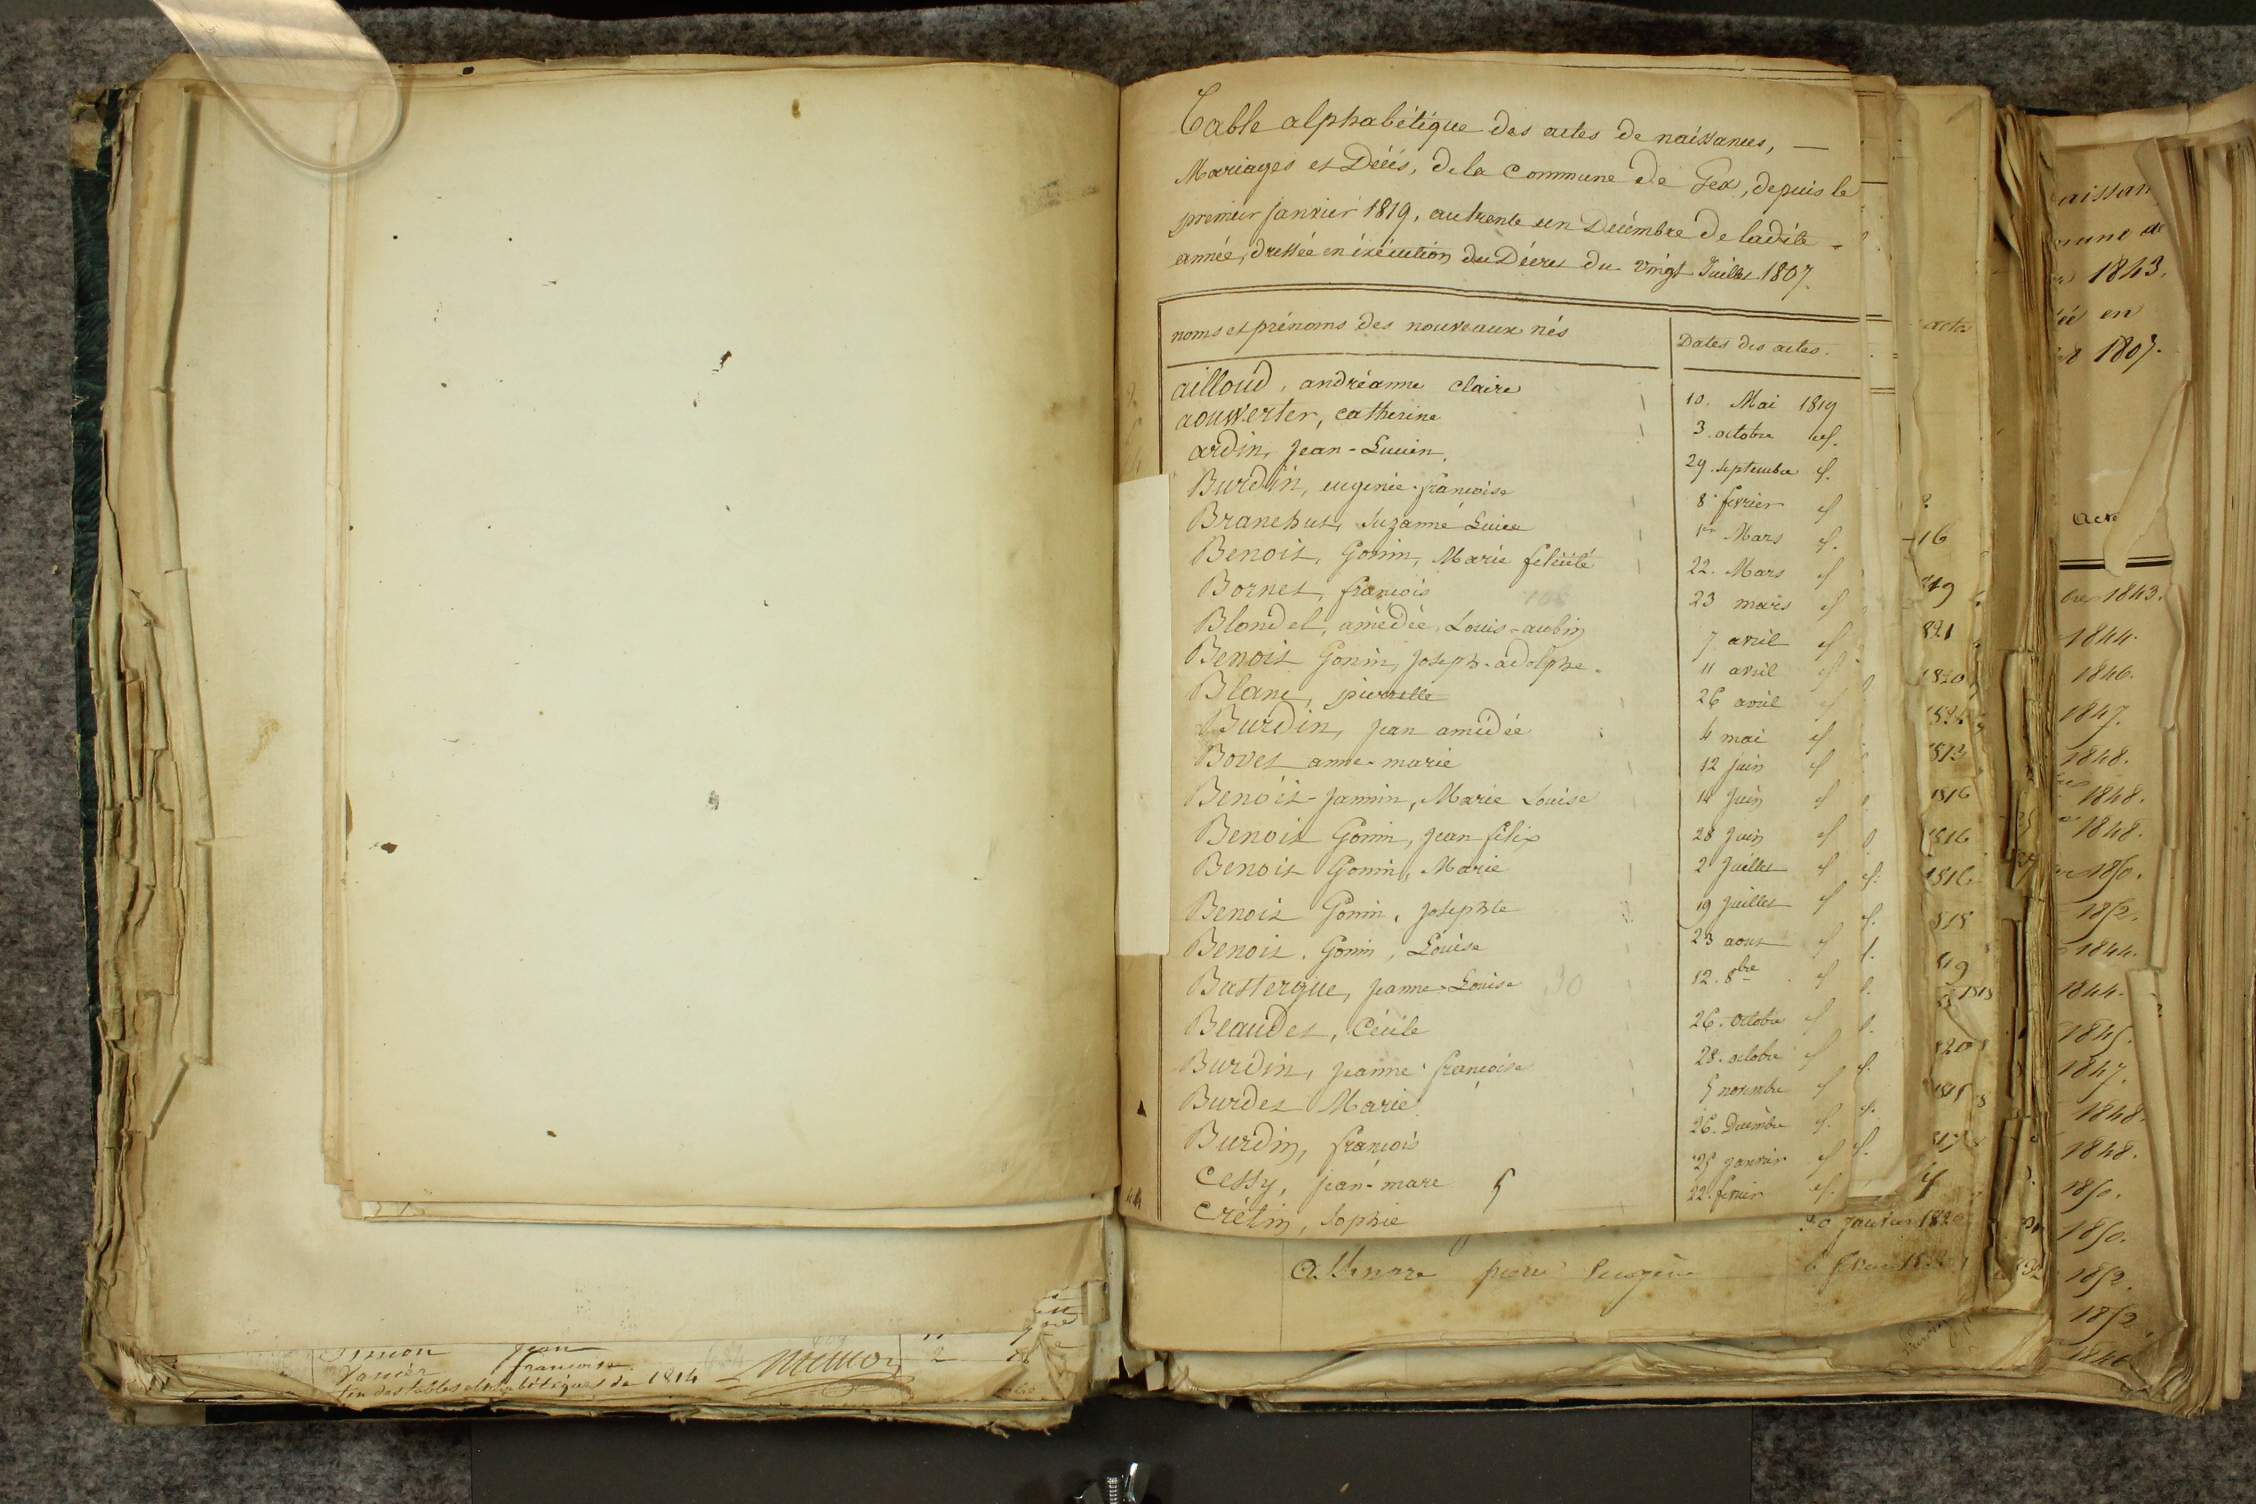 Table alphabétique des actes de naissances, —
Mariages et Décès, de la Commune de Gex, depuis le
premier Janvier 1819, au trente un Décembre de ladite
année, dressée en éxécution du Décret du vingt Juillet 1807.
noms et prénoms des nouveaux nés Dates des actes.
ailloud, andréanne claire 10. Mai 1819
aouwerter, catherine 3. octobre id.
ardin, Jean-Lucien. 29. septembre id.
Burdin, eugenie françoise 8 fevrier id
Branchut, Suzanne 1er Mars id.
Benoit, Gonin, Marie félicité 22. Mars id
Bornet, françois 23 mars id
Blondel, amédée, Louis-aubin 7 avril id
Benoit Gonin, Joseph-adolphe. 11 avril id
Blanc, pierrette 26 avril id
Burdin, jean amédée 4 mai id
Bovet anne-marie 12 juin id
Benoit-Jannin, Marie Louise 14 Juin id
Benoit Gonin, Jean félix 28 Juin id
Benoit Gonin, Marie 2 Juillet id
Benoit Gonin, Josephte 19 Juillet id
Benoit. Gonin, Louise 23 aout id
Bastergue, Jeanne-Louise 12. 8bre id
Beaudet, Cécile 26. octobre id
Burdin, Jeanne françoise 28. octobre id
Burdet Marie 5 novembre id
Burdin, françois 26. Décembre id.
Cessy, jean-marc 25 janvier id
Crétin, Sophie 22. fevrier id.
30 Janvier 1820
Simon Jean
françoise
fin des tables alphabétiques de 1814
1843.
1807.
acte
1843.
1844.
1846.
1847.
1848.
1848.
1848.
1850.
1852.
1844.
1844.
1845.
1847.
1848.
1848.
1850.
1850.
1852.